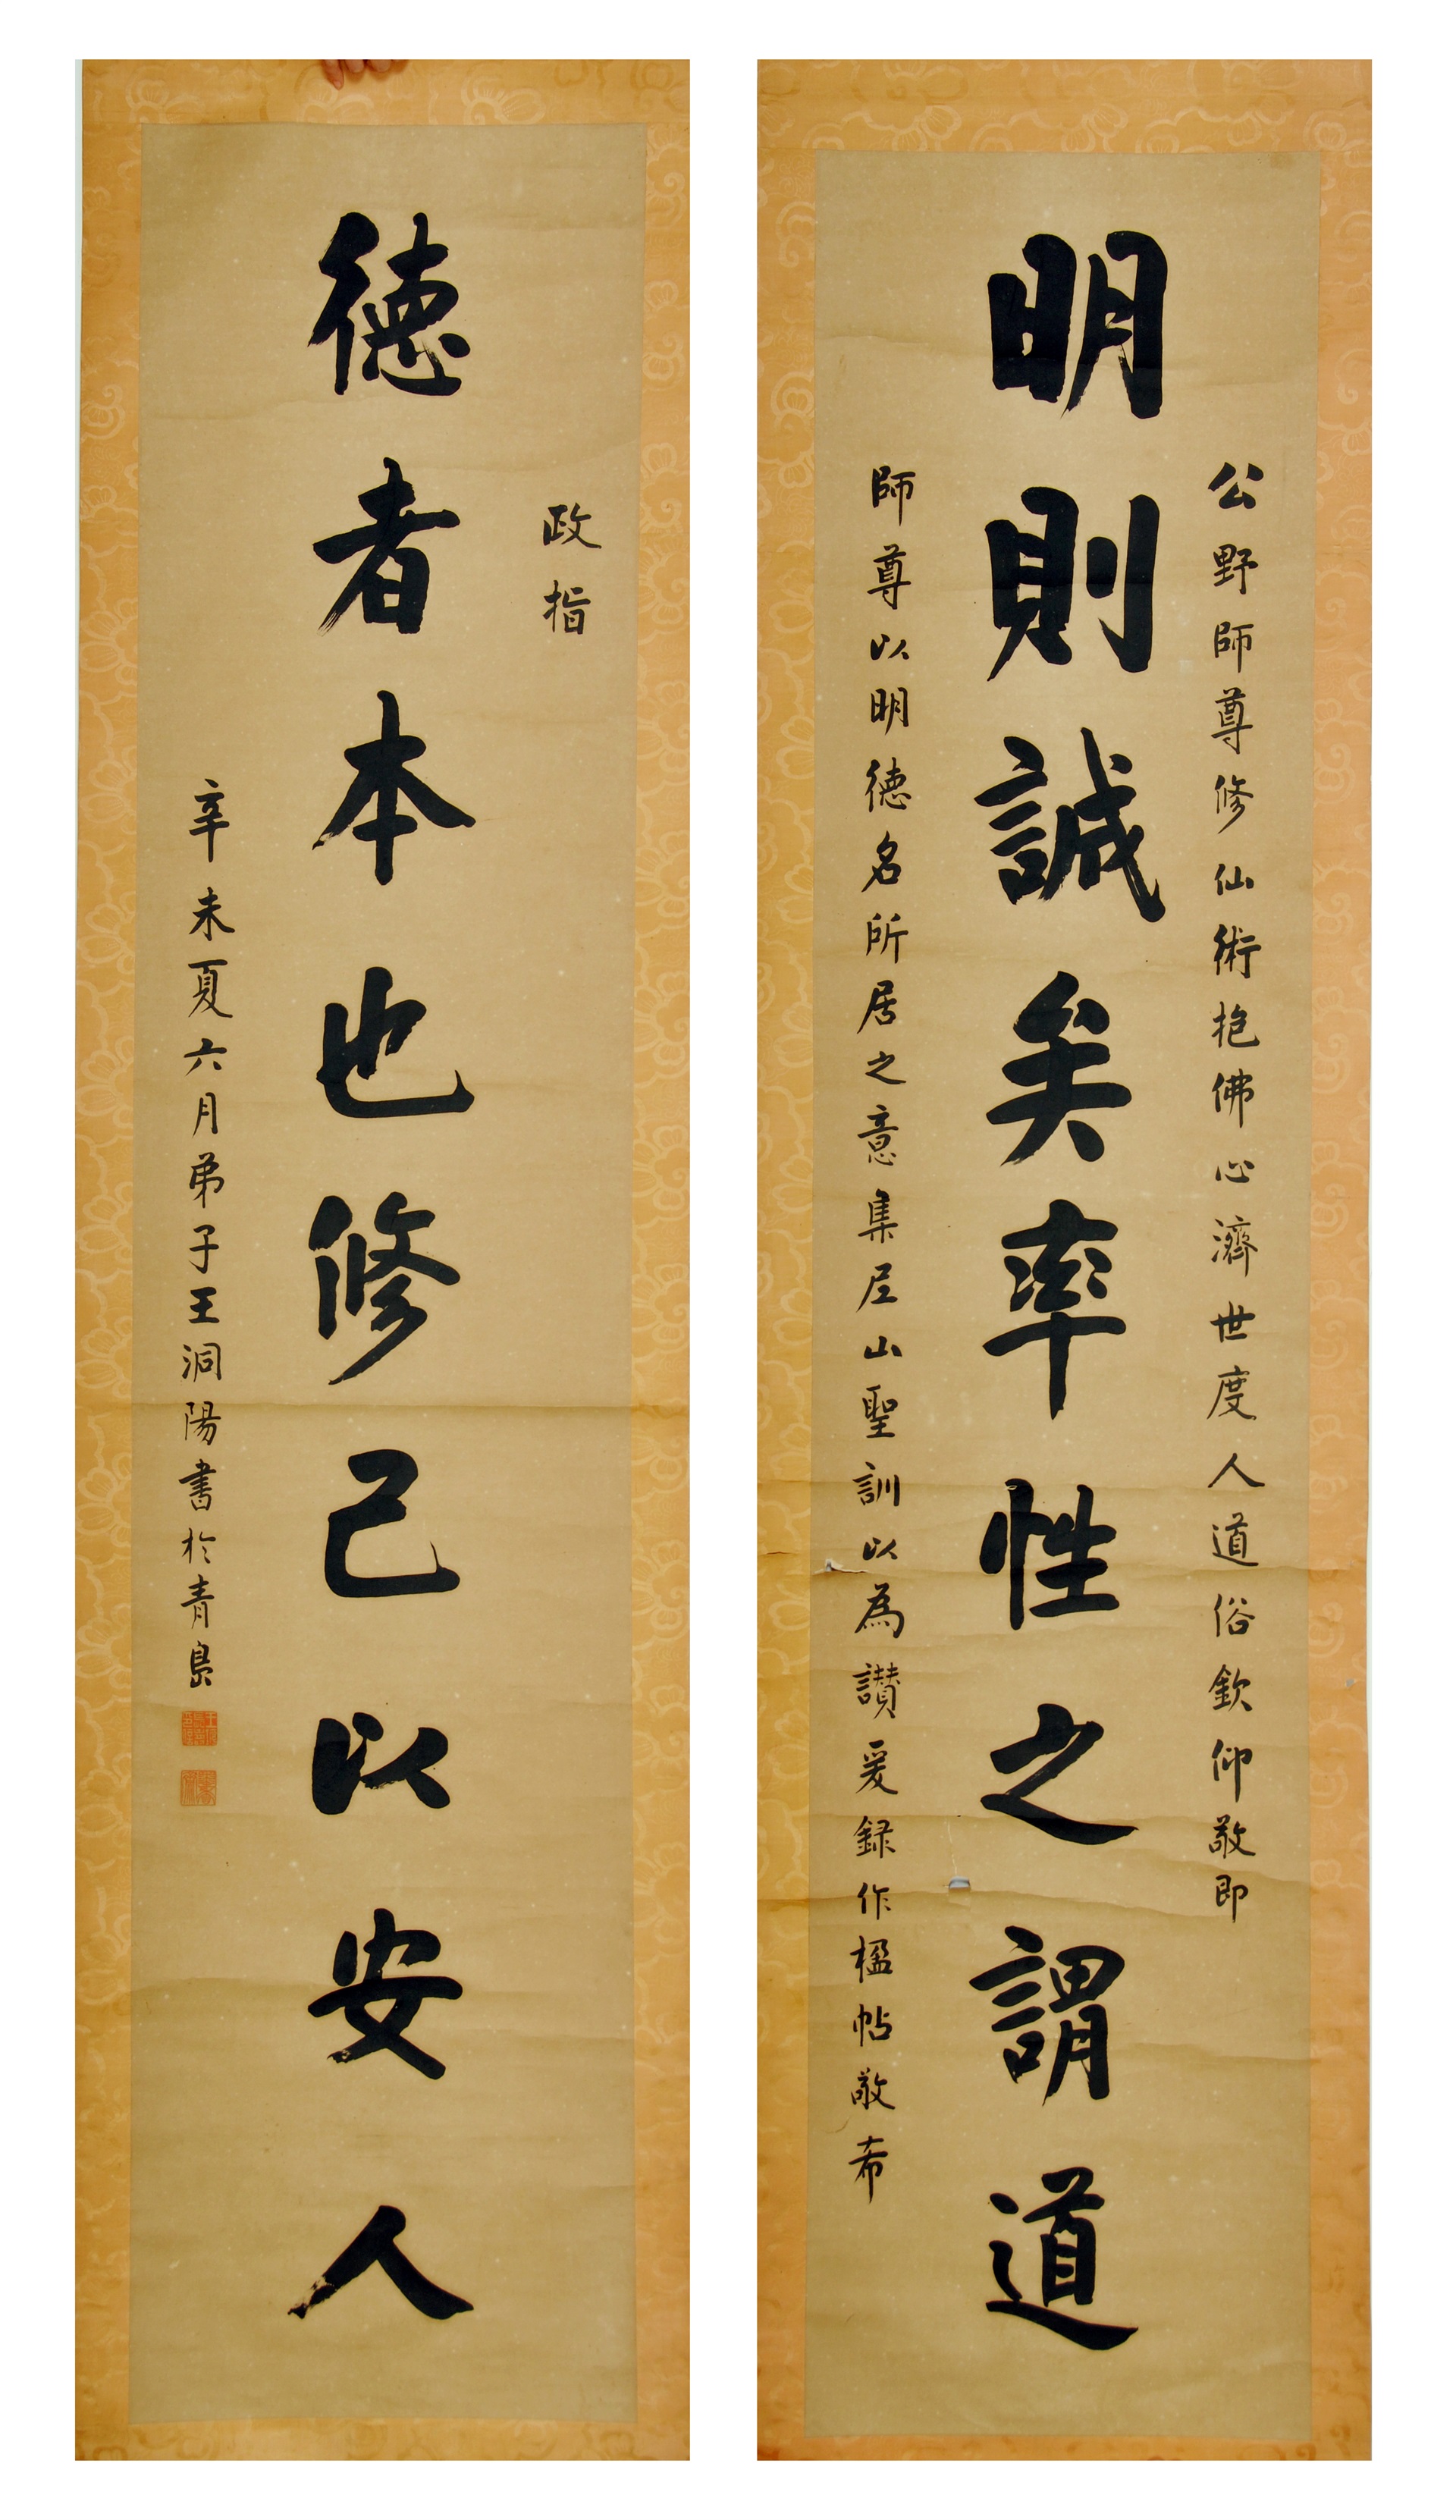 公野師尊修仙術抱佛心濟世度人道俗欽仰敬即
明則誠矣率性之謂道
師尊以明德名所居之意集尼山聖訓以為讃爰録作楹帖敬希
政指
德者本也修己以安人
辛未夏六月弟子王洞陽書於青島